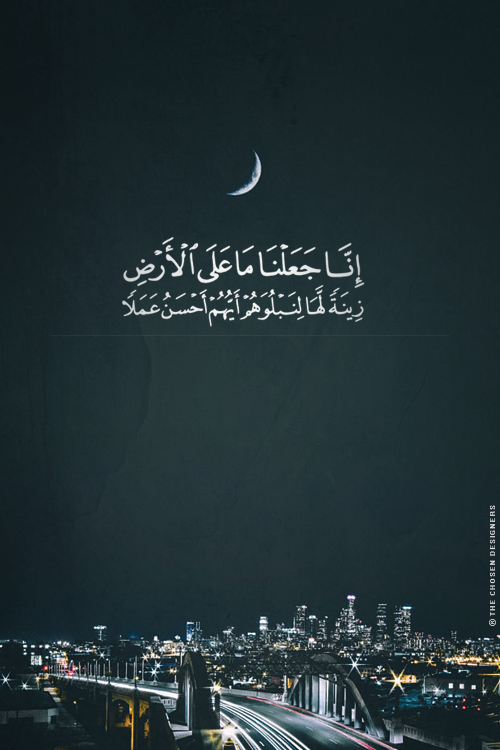 إِنَّا جَعَلْنَا مَا عَلَى ٱلْأَرْضِ
زِينَةً لَّهَا لِنَبْلُوَهُمْ أَيُّهُمْ أَحْسَنُ عَمَلًا
© THE CHOSEN DESIGNERS